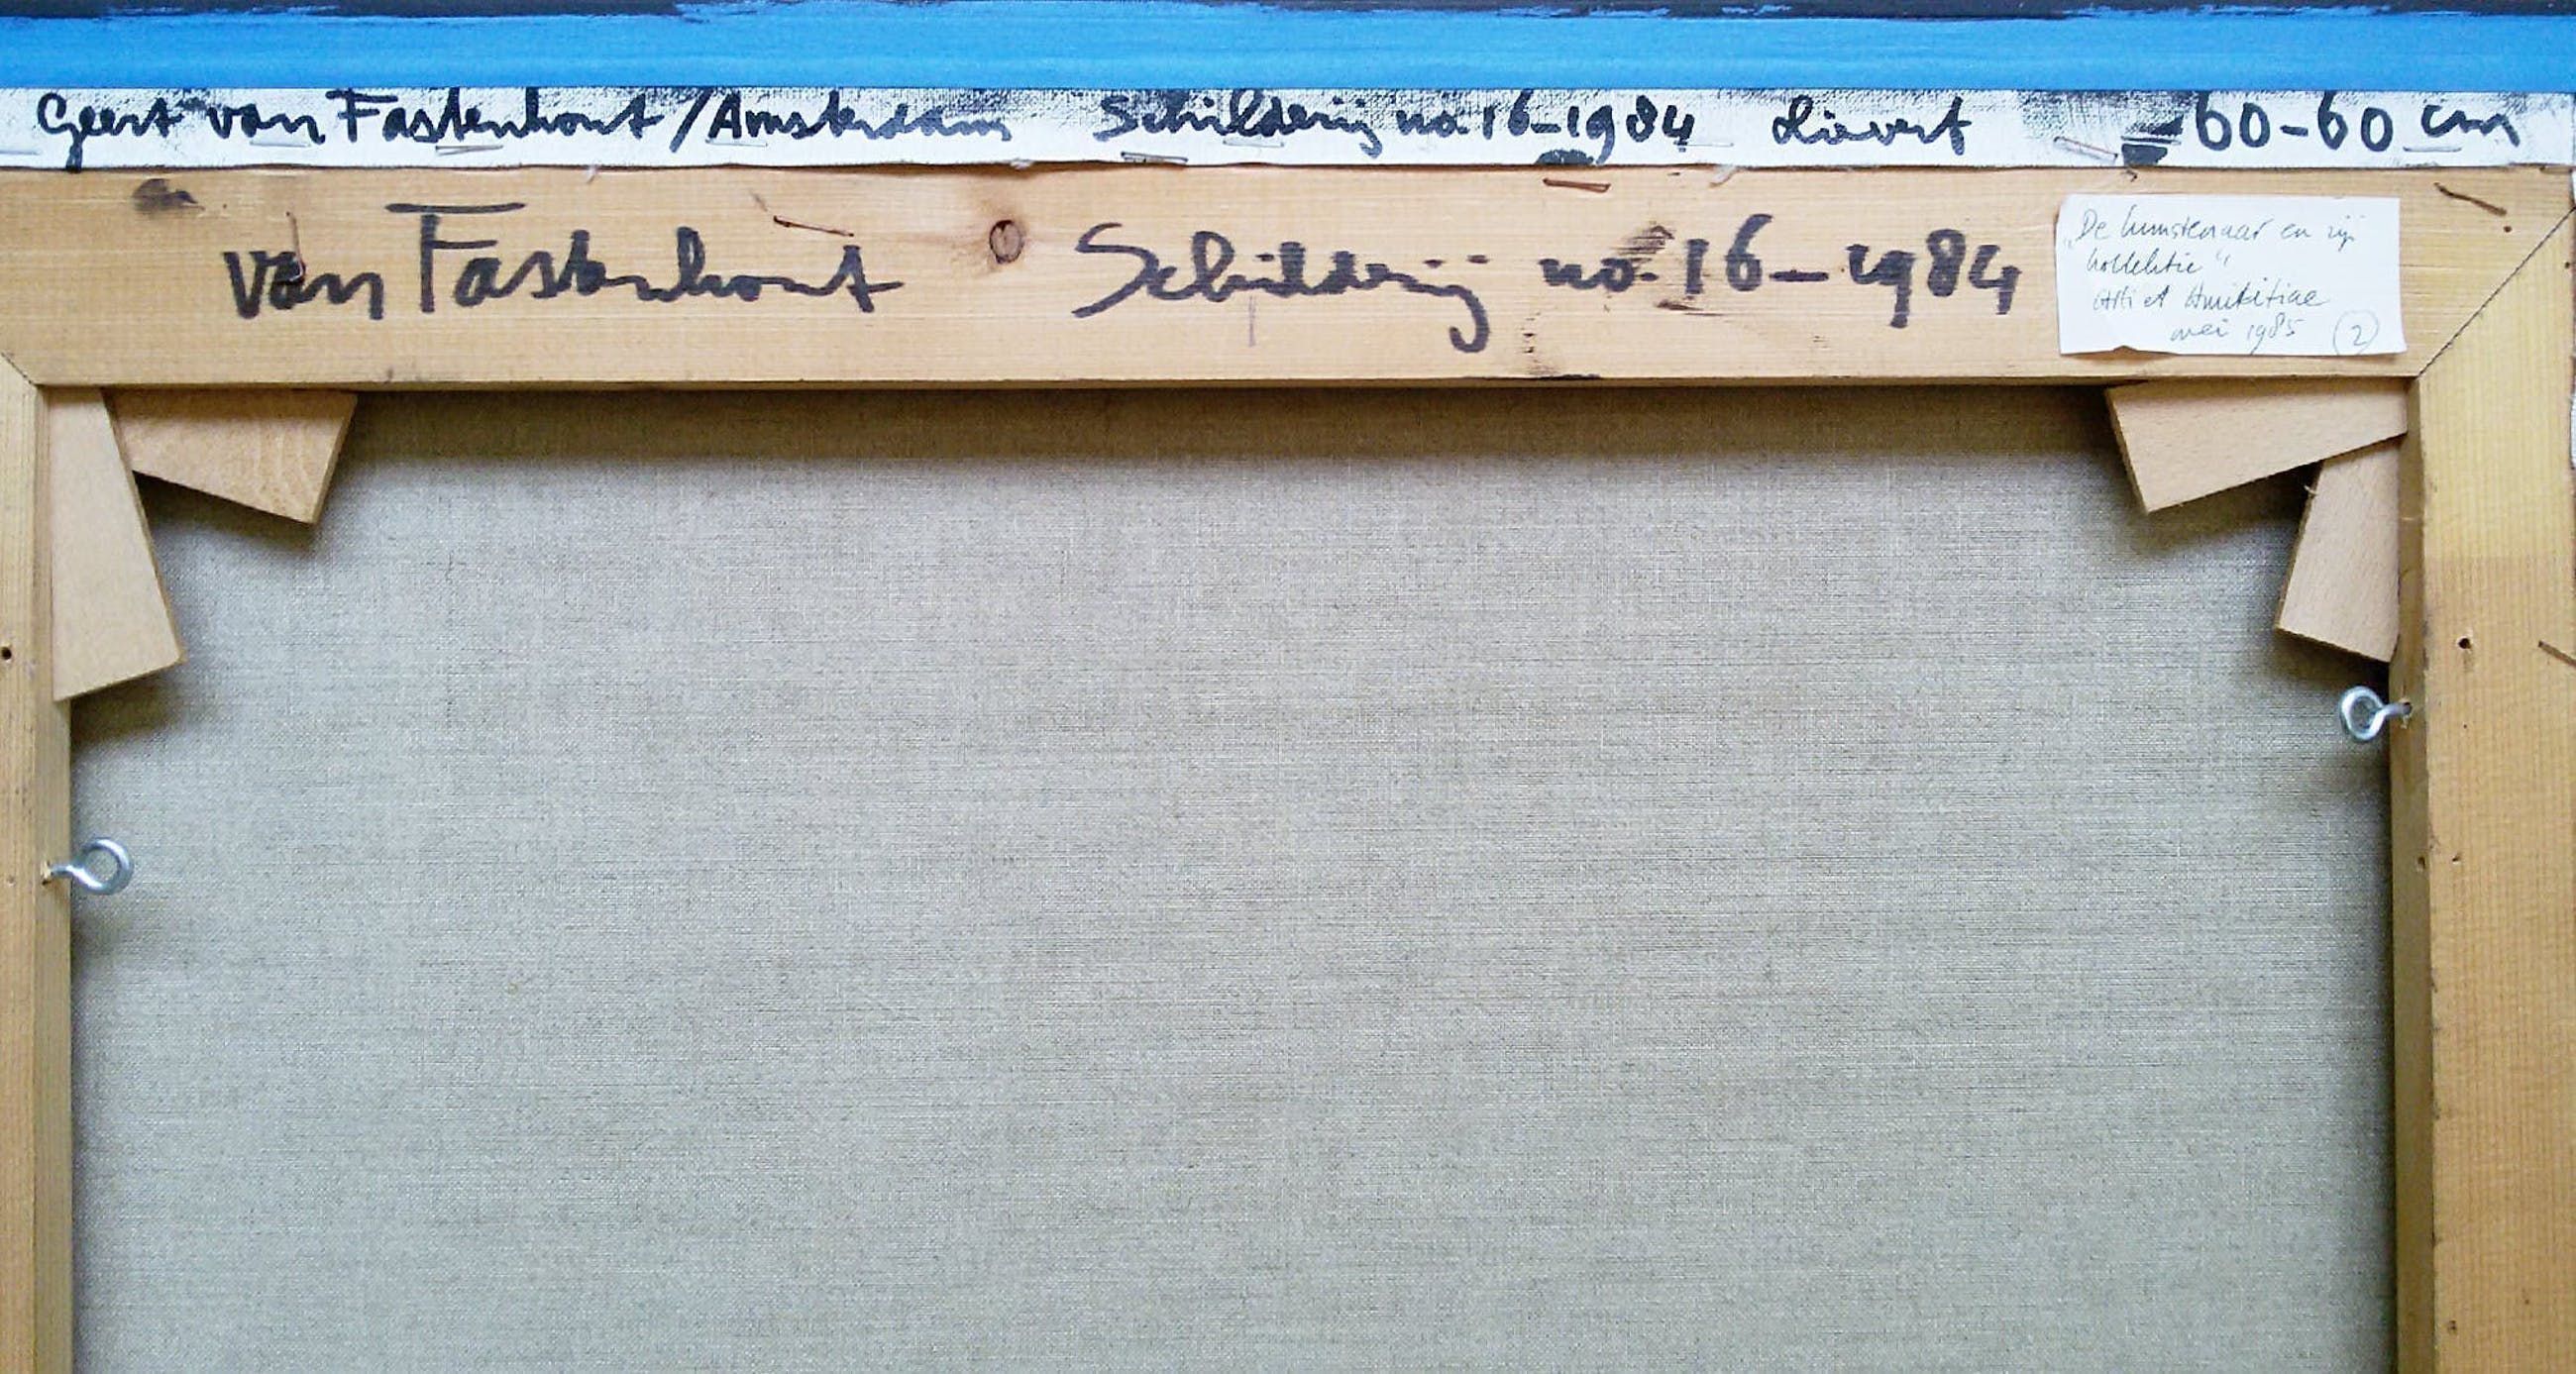 Geert van Fastenhout / Amsterdam Schilderij no. 16-1984 60-60 cm
van Fastenhout Schilderij no. 16-1984
„De kunstenaar en zijn
kollektie"
Arti et Amicitiae
mei 1985 2